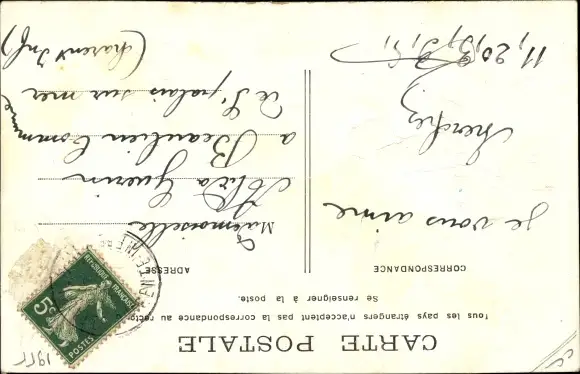 CARTE POSTALE
Tous les pays étrangers n'acceptent pas la correspondance au recto
Se renseigner à la poste.
CORRESPONDANCE
je vous aime
cherchez
11, 20, 3, 9, 1,
ADRESSE
Mademoiselle
Guerin
a Beaulieu Commune
de St palais sur mer
(Charent Inf)
REPUBLIQUE FRANÇAISE
5c
POSTES